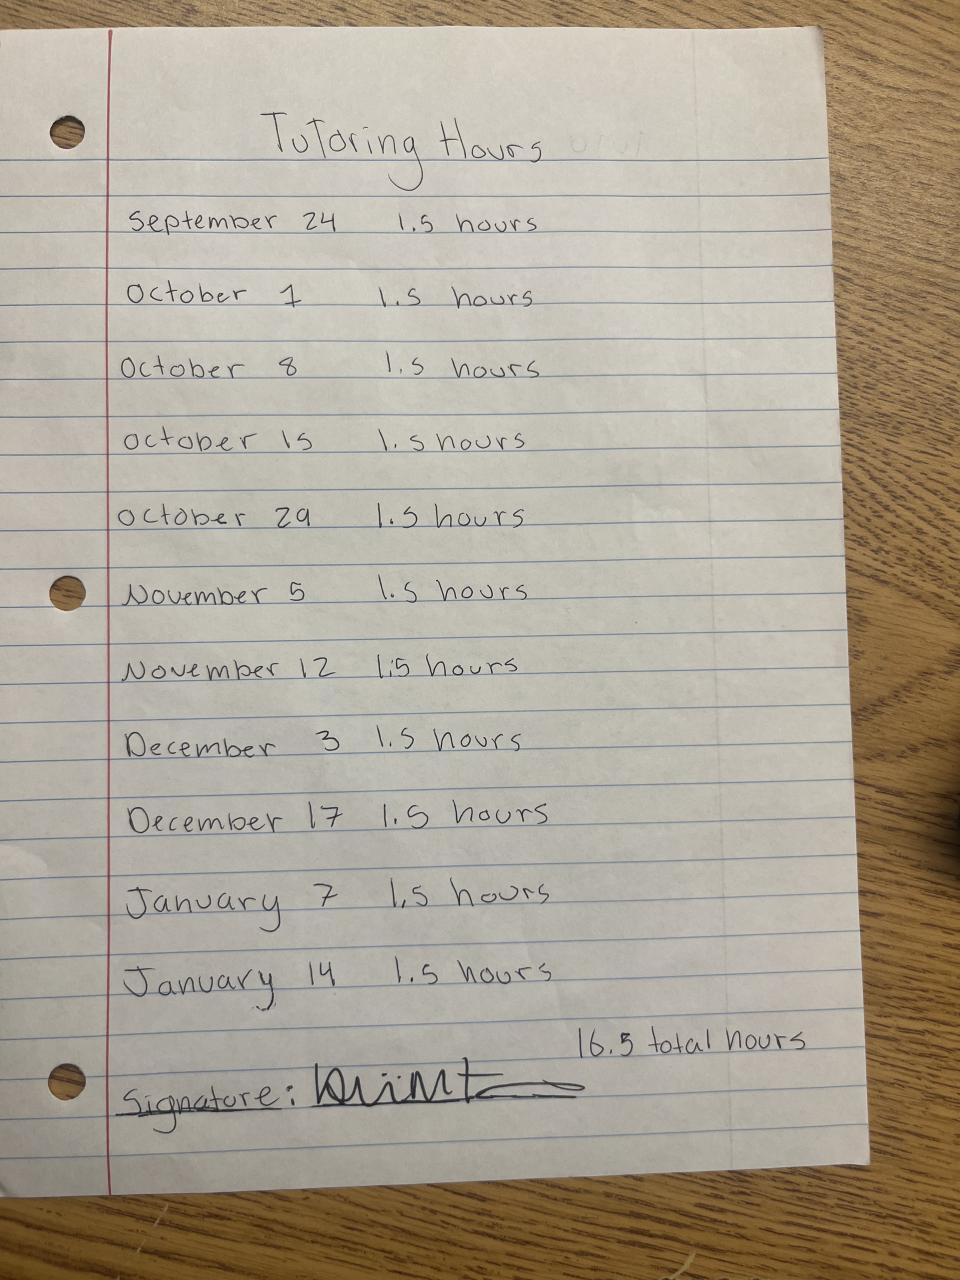 Tutoring Hours
September 24 1.5 hours
October 1 1.5 hours
October 8 1.5 hours
October 15 1.5 hours
October 29 1.5 hours
November 5 1.5 hours
November 12 1.5 hours
December 3 1.5 hours
December 17 1.5 hours
January 7 1.5 hours
January 14 1.5 hours
16.5 total hours
Signature: